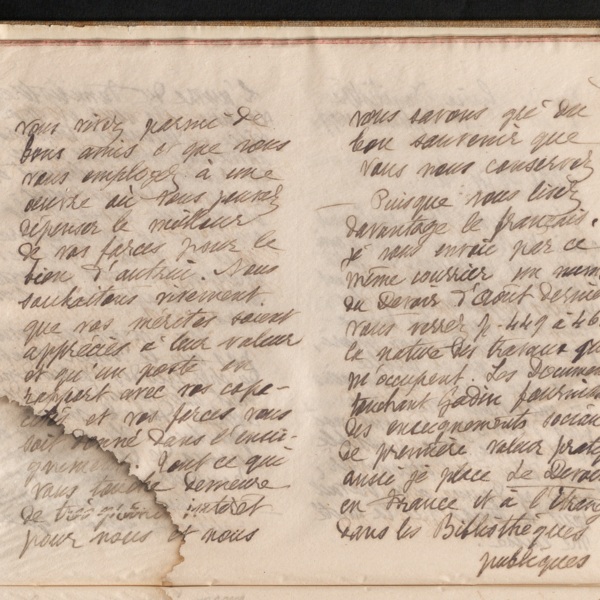 vous vivez parmi de
bons amis et que vous
vous employez à une
œuvre où vous pouvez
dépenser le meilleur
de vos forces pour le
bien d'autrui. Nous
souhaitons vivement
que vos mérites soient
appréciés à leur valeur
et qu'un poste en
rapport avec vos capa-
cité et vos forces vous
soit donné dans l'ensei-
gnement. Tout ce qui
vous touche demeure
de intérêt
pour nous et nous
vous savons gré du
bon souvenir que
vous nous conservez
Puisque vous lisez
davantage le français,
je vous envoie par ce
même courrier un numé
du Devoir d'Août dernier
vous verrez p. 449 à 46
la nature des travaux qui
m'occupent. Les document
touchant Godin fournis
des enseignements sociau
de première valeur prati
aussi je place le Devoir
en France et à l'étrang
dans les Bibliothèques
publiques